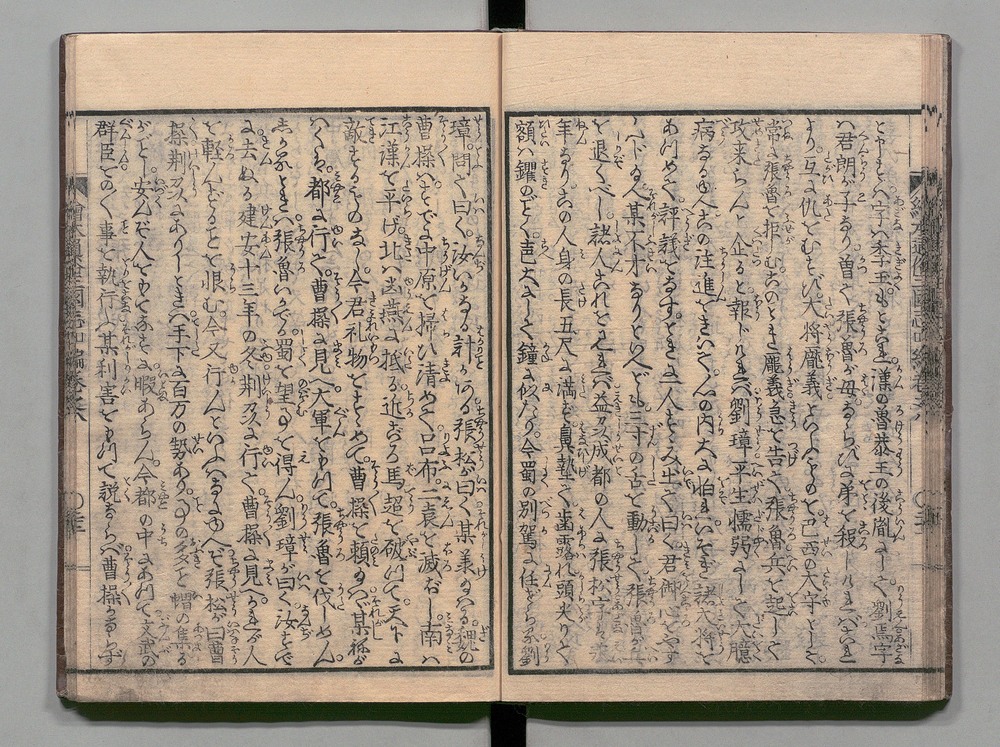 字ハ季玉もと是漢の魯恭王の後胤にして劉焉字
ハ君朗が子なり曽て張魯が母ならびに弟を殺しければこれ
より互に仇をむすび大将龐羲といふものを巴西の太守として
常に張魯を拒しむこのとき龐羲急を告て張魯兵を起して
攻来らんと企ると報じければ劉璋平生懦弱にして大に臆
病なるゆへこの注進をきいて心の内大に怕れいそぎ諸大将を
あつめて評議をなすときに一人すゝみ出て曰く君御心をやす
んじ給へ某不才なりといへども三寸の舌を動して張魯
を退くべし諸人これをみれば益州成都の人に張松字ハ
年なりこの人身の長五尺に満ず鼻塾て歯露れ頭尖りて
額ハ钁のごとく声大にして鐘に似たり今蜀の別駕に任ぜらる劉
璋問て曰く汝いかなる計かある張松が曰く某承る魏の
曹操ハすでに中原を掃ひ清めて呂布二袁を滅ぼし南ハ
江漢を平げ北ハ幽燕に抵り近ごろ馬超を破つて天下に
敵するものなし今君礼物をとゝのへて曹操を頼み給へ某が
ハくハ都に行て曹操に見へ大軍をもつて張魯を伐しめん
しからるときハ張魯いかでか蜀を望む事を得ん劉璋が曰く汝すで
に去ぬる建安十三年の冬荊州に行て曹操に見へければ人
を軽んずることを恨む今又行んといふハなるゆへぞ張松が曰曹
操荊州にありしときハ手下に百万の勢あり事の多を
がごとし安んぞ人をもてなすに暇あらん今都の中にあつて文武の
群臣とのく事を執行ふ某利害をもつて説ならバ曹操かならず
繪本通俗三國志四編巻之六